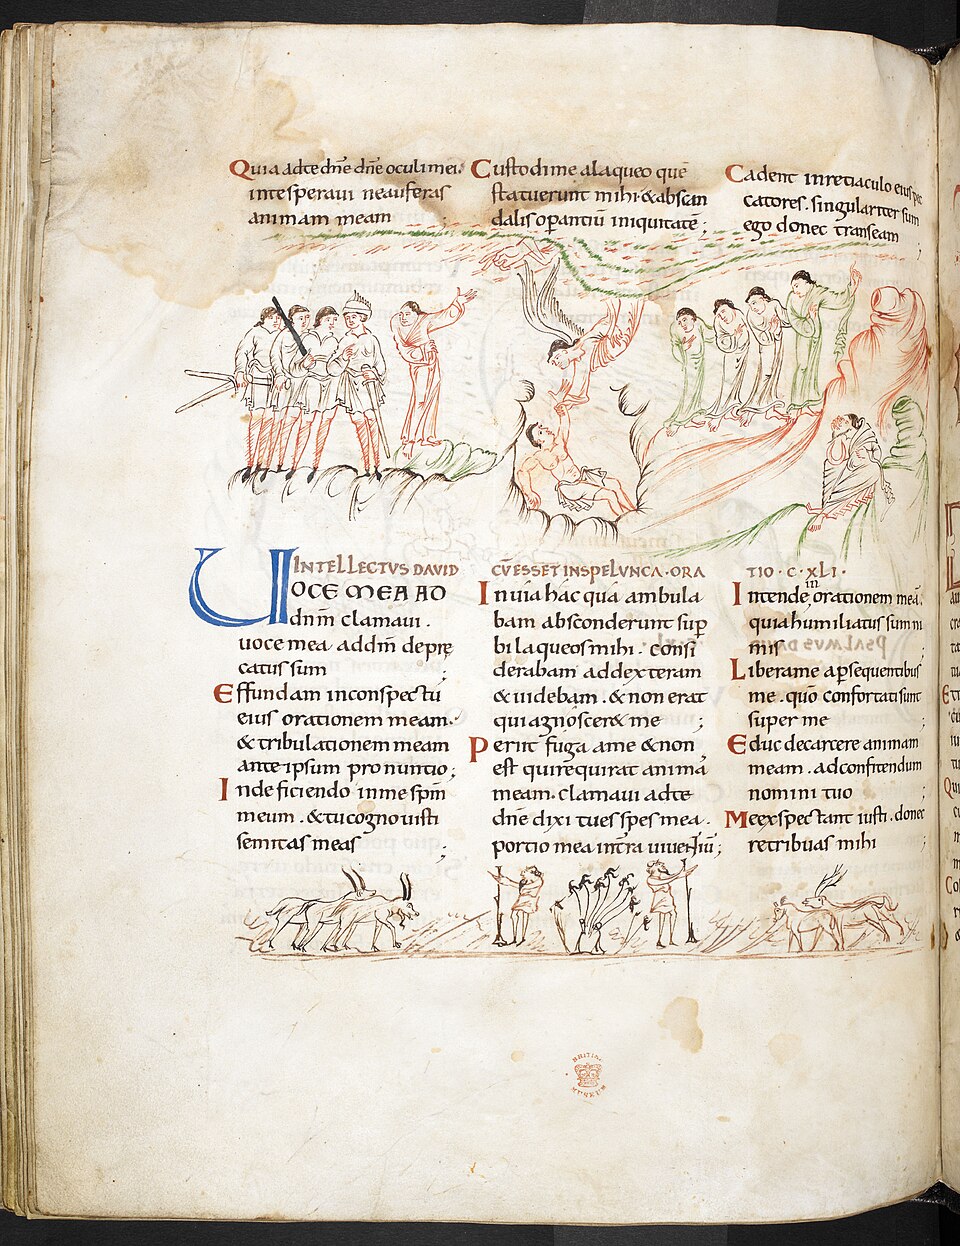 Quia adte dn̄e dn̄e oculi mei.
inte speravi ne auferas
animam meam
Custodi me a laqueo quē
statuerunt mihi & abscan
dalis opantiū iniquitatē;
Cadent in retiaculo eius pec
catores. singulariter sum
ego donec transeam;
INTELLECTUS DAVID
UOCE MEA AD
dnm̄ clamavi.
voce mea ad dnm̄ depre
catus sum;
Effundam inconspectu
eius orationem meam.
& tribulationem meam
ante ipsum pronuntio;
Indeficiendo inme spm̄
meum. & tu cognovisti
semitas meas;
CU ESSET IN SPELUNCA. ORA
In via hac qua ambula
bam absconderunt sup
bi laqueos mihi. consi
derabam ad dexteram
& videbam. & non erat
qui agnoscer& me;
Periit fuga a me & non
est qui requirat animā
meam. clamavi adte
dn̄e dixi tu es spes mea.
portio mea intra viventiū;
TIO. C. XLI.
Intende in orationem meā.
quia humiliatus sum ni
mis
Libera me a psequentibus
me. quō confortati sunt
super me
Educ de carcere animam
meam. ad confitendum
nomini tuo
Me expectant iusti. donec
retribuas mihi;
BRITISH
MUSEUM